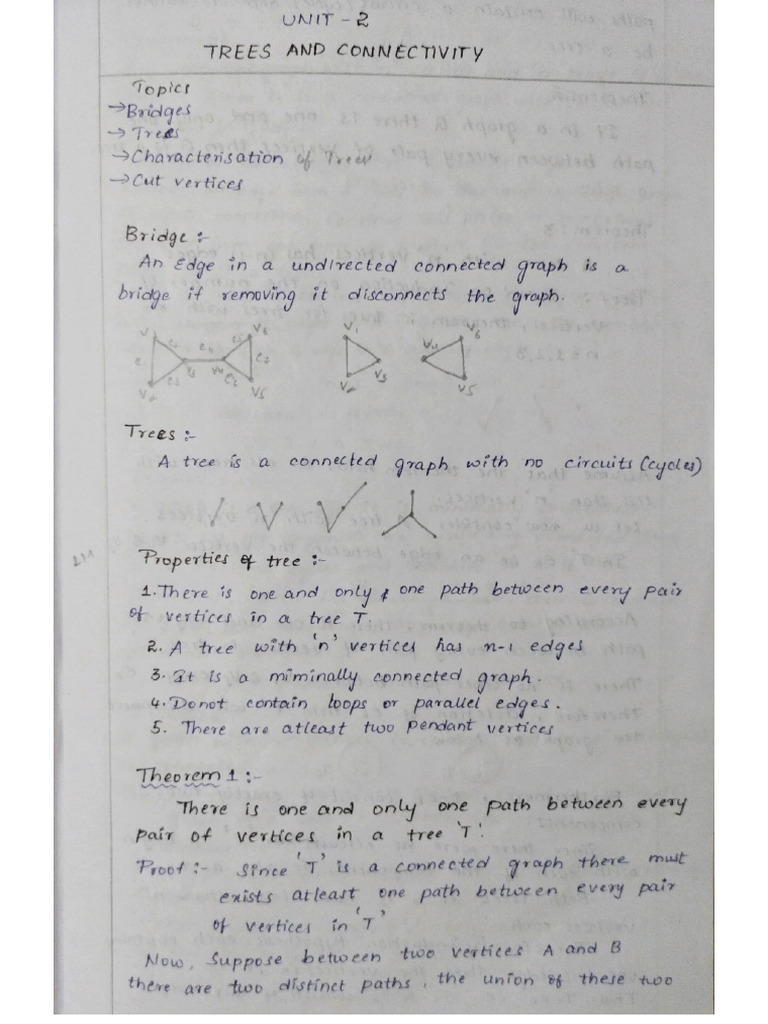 UNIT - 2
TREES AND CONNECTIVITY
Topics
→Bridges
→Trees
→Characterisation of Trees
→Cut vertices
Bridge :-
An Edge in a undirected connected graph is a
bridge if removing it disconnects the graph.
V1 e4 V6 V1 V6
V4 e7 V4
V5 V3 V5
Trees :-
A tree is a connected graph with no circuits (cycles)
Properties of tree :-
1. There is one and only one path between every pair
of vertices in a tree T.
2. A tree with 'n' vertices has n-1 edges
3. It is a miminally connected graph.
4. Donot contain loops or parallel edges.
5. There are atleast two pendant vertices
Theorem 1 :-
There is one and only one path between every
pair of vertices in a tree 'T'.
Proof :- Since 'T' is a connected graph there must
exists atleast one path between every pair
of vertices in 'T'
Now, Suppose between two vertices A and B
there are two distinct paths, the union of these two